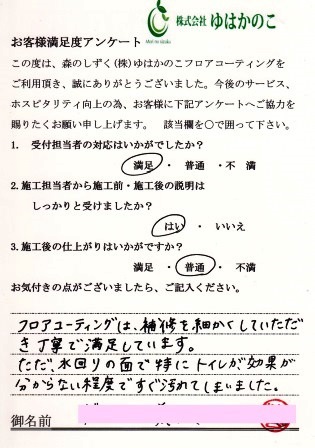 株式会社 ゆはかのこ
お客様満足度アンケート
この度は、森のしずく(株)ゆはかのこフロアコーティングを
ご利用頂き、誠にありがとうございました。今後のサービス、
ホスピタリティ向上の為、お客様に下記アンケートへご協力を
賜りたくお願い申し上げます。 該当欄を○で囲って下さい。
1. 受付担当者の対応はいかがでしたか?
満足 ・ 普通 ・ 不 満
2. 施工担当者から施工前・施工後の説明は
しっかりと受けましたか?
はい ・ いいえ
3. 施工後の仕上がりはいかがですか?
満足 ・ 普通 ・ 不 満
お気付きの点がございましたら、ご記入ください。
フロアコーティングは、補修を細かくしていただ
き丁寧で満足しています。
ただ、水回りの面で特にトイレが効果が
分からない程度ですぐ汚れてしまいました。
御名前